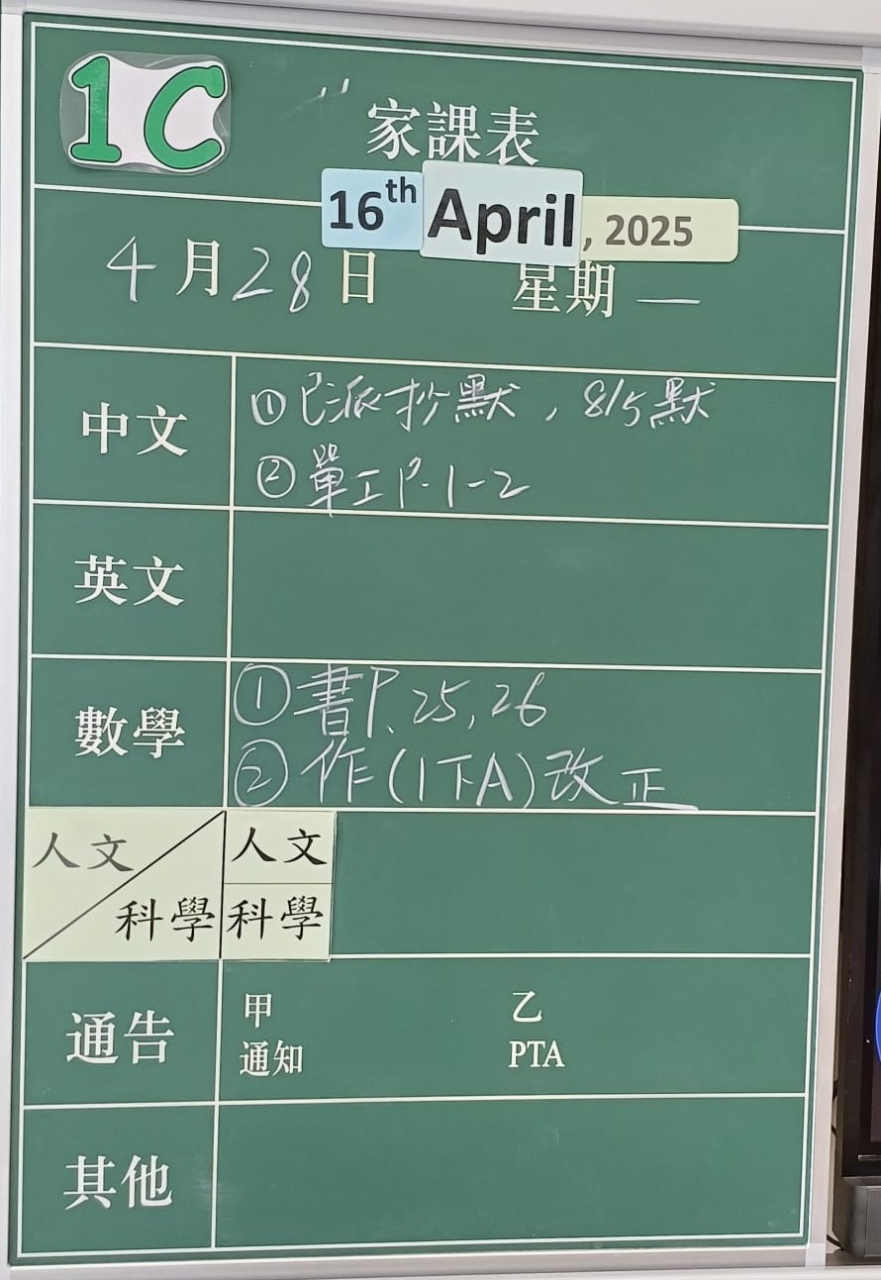 1C
家課表
16th April, 2025
4月28日 星期一
中文
①已派抄默，8/5默
②單工P.1-2
英文
數學
①書P.25,26
②作(1下A)改正
人文
科學
人文
科學
通告
甲 乙
通知 PTA
其他